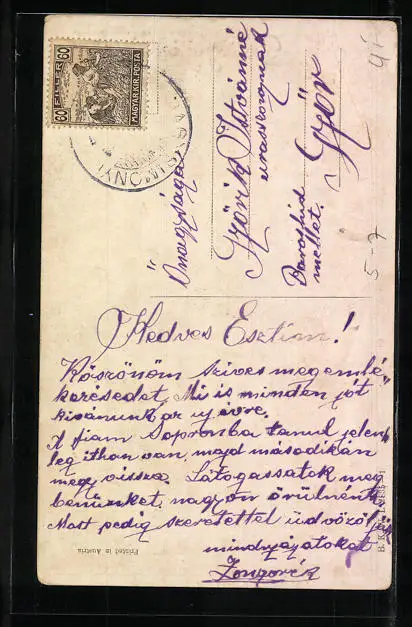 60 FILLÉR 60
MAGYAR KIR. POSTA
NAGYSIMONYI
Őnagysága
Györik Istvánné
urasszonynak
Győr
Baross híd
mellet.
5-7
Kedves Esztim!
Köszönöm szives megemlé„
kezésedet, Mi is minden jót
kivánunk az uj évre.
A fiam Sopronba tanul jelen„
leg itthon van, majd másodikán
meg vissza. Látogassatok meg
benünket, nagyon örülnénk
Most pedig szeretettel üdvözöljük
mindnyájatokat
Printed in Austria